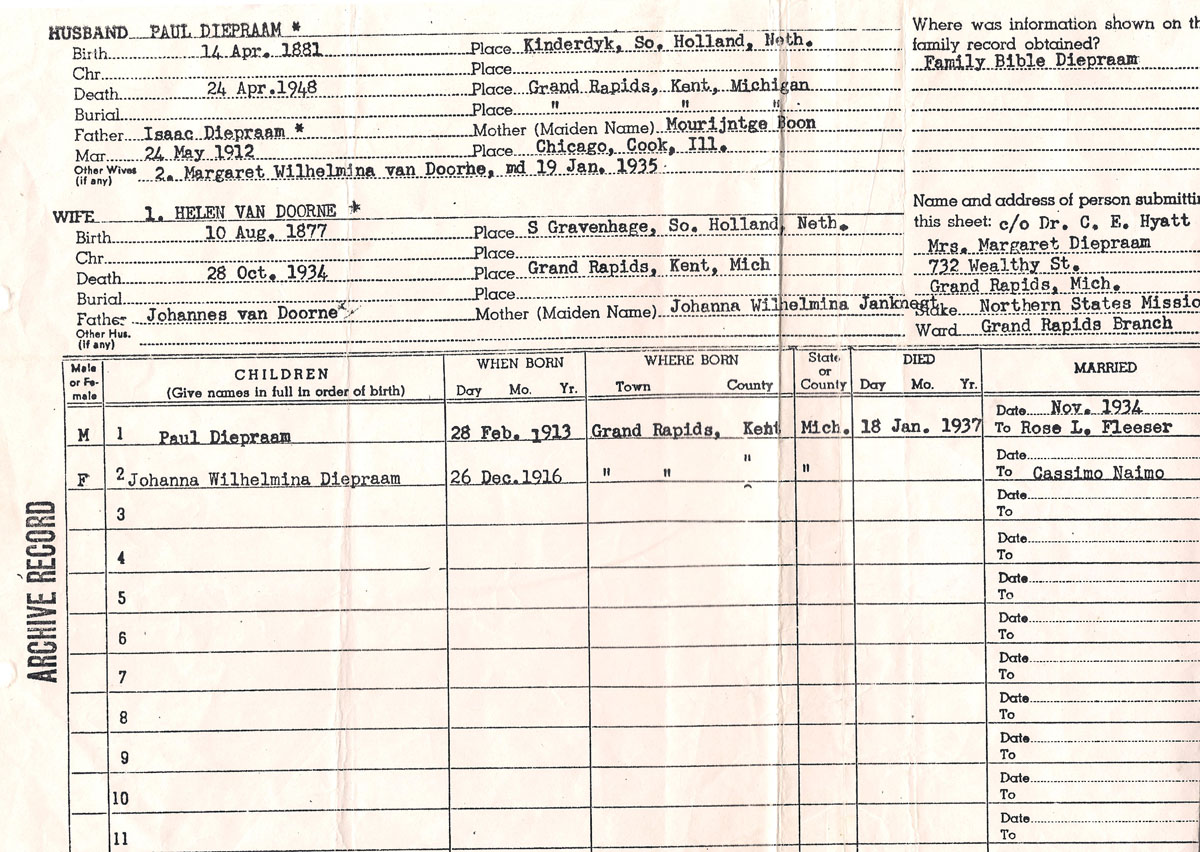 HUSBAND PAUL DIEPRAAM *
Birth 14 Apr. 1881 Place Kinderdyk, So. Holland, Neth.
Chr. Place
Death 24 Apr.1948 Place Grand Rapids, Kent, Michigan
Burial Place " " "
Father Isaac Diepraam * Mother (Maiden Name) Mourijntge Boon
Mar. 24 May 1912 Place Chicago, Cook, Ill.
Other Wives (if any) 2. Margaret Wilhelmina van Doorne, md 19 Jan. 1935
Where was information shown on th
family record obtained?
Family Bible Diepraam
WIFE 1. HELEN VAN DOORNE *
Birth 10 Aug. 1877 Place S Gravenhage, So. Holland, Neth.
Chr. Place
Death 28 Oct. 1934 Place Grand Rapids, Kent, Mich
Burial Place
Father Johannes van Doorne* Mother (Maiden Name) Johanna Wilhelmina Janknegt
Other Hus. (if any)
Name and address of person submittin
this sheet: c/o Dr. C. E. Hyatt
Mrs. Margaret Diepraam
732 Wealthy St.
Grand Rapids, Mich.
Stake Northern States Missio
Ward Grand Rapids Branch
Male or Female CHILDREN (Give names in full in order of birth) WHEN BORN Day Mo. Yr. WHERE BORN Town County State or County DIED Day Mo. Yr. MARRIED
M 1 Paul Diepraam 28 Feb. 1913 Grand Rapids, Kent Mich. 18 Jan. 1937 Date Nov. 1934
To Rose L. Fleeser
F 2 Johanna Wilhelmina Diepraam 26 Dec.1916 " " " " Date
To Cassimo Naimo
3 Date
To
4 Date
To
5 Date
To
6 Date
To
7 Date
To
8 Date
To
9 Date
To
10 Date
To
11 Date
To
ARCHIVE RECORD